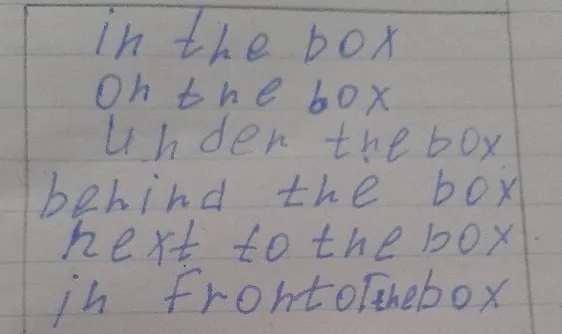 in the box
on the box
under the box
behind the box
next to the box
in front of the box